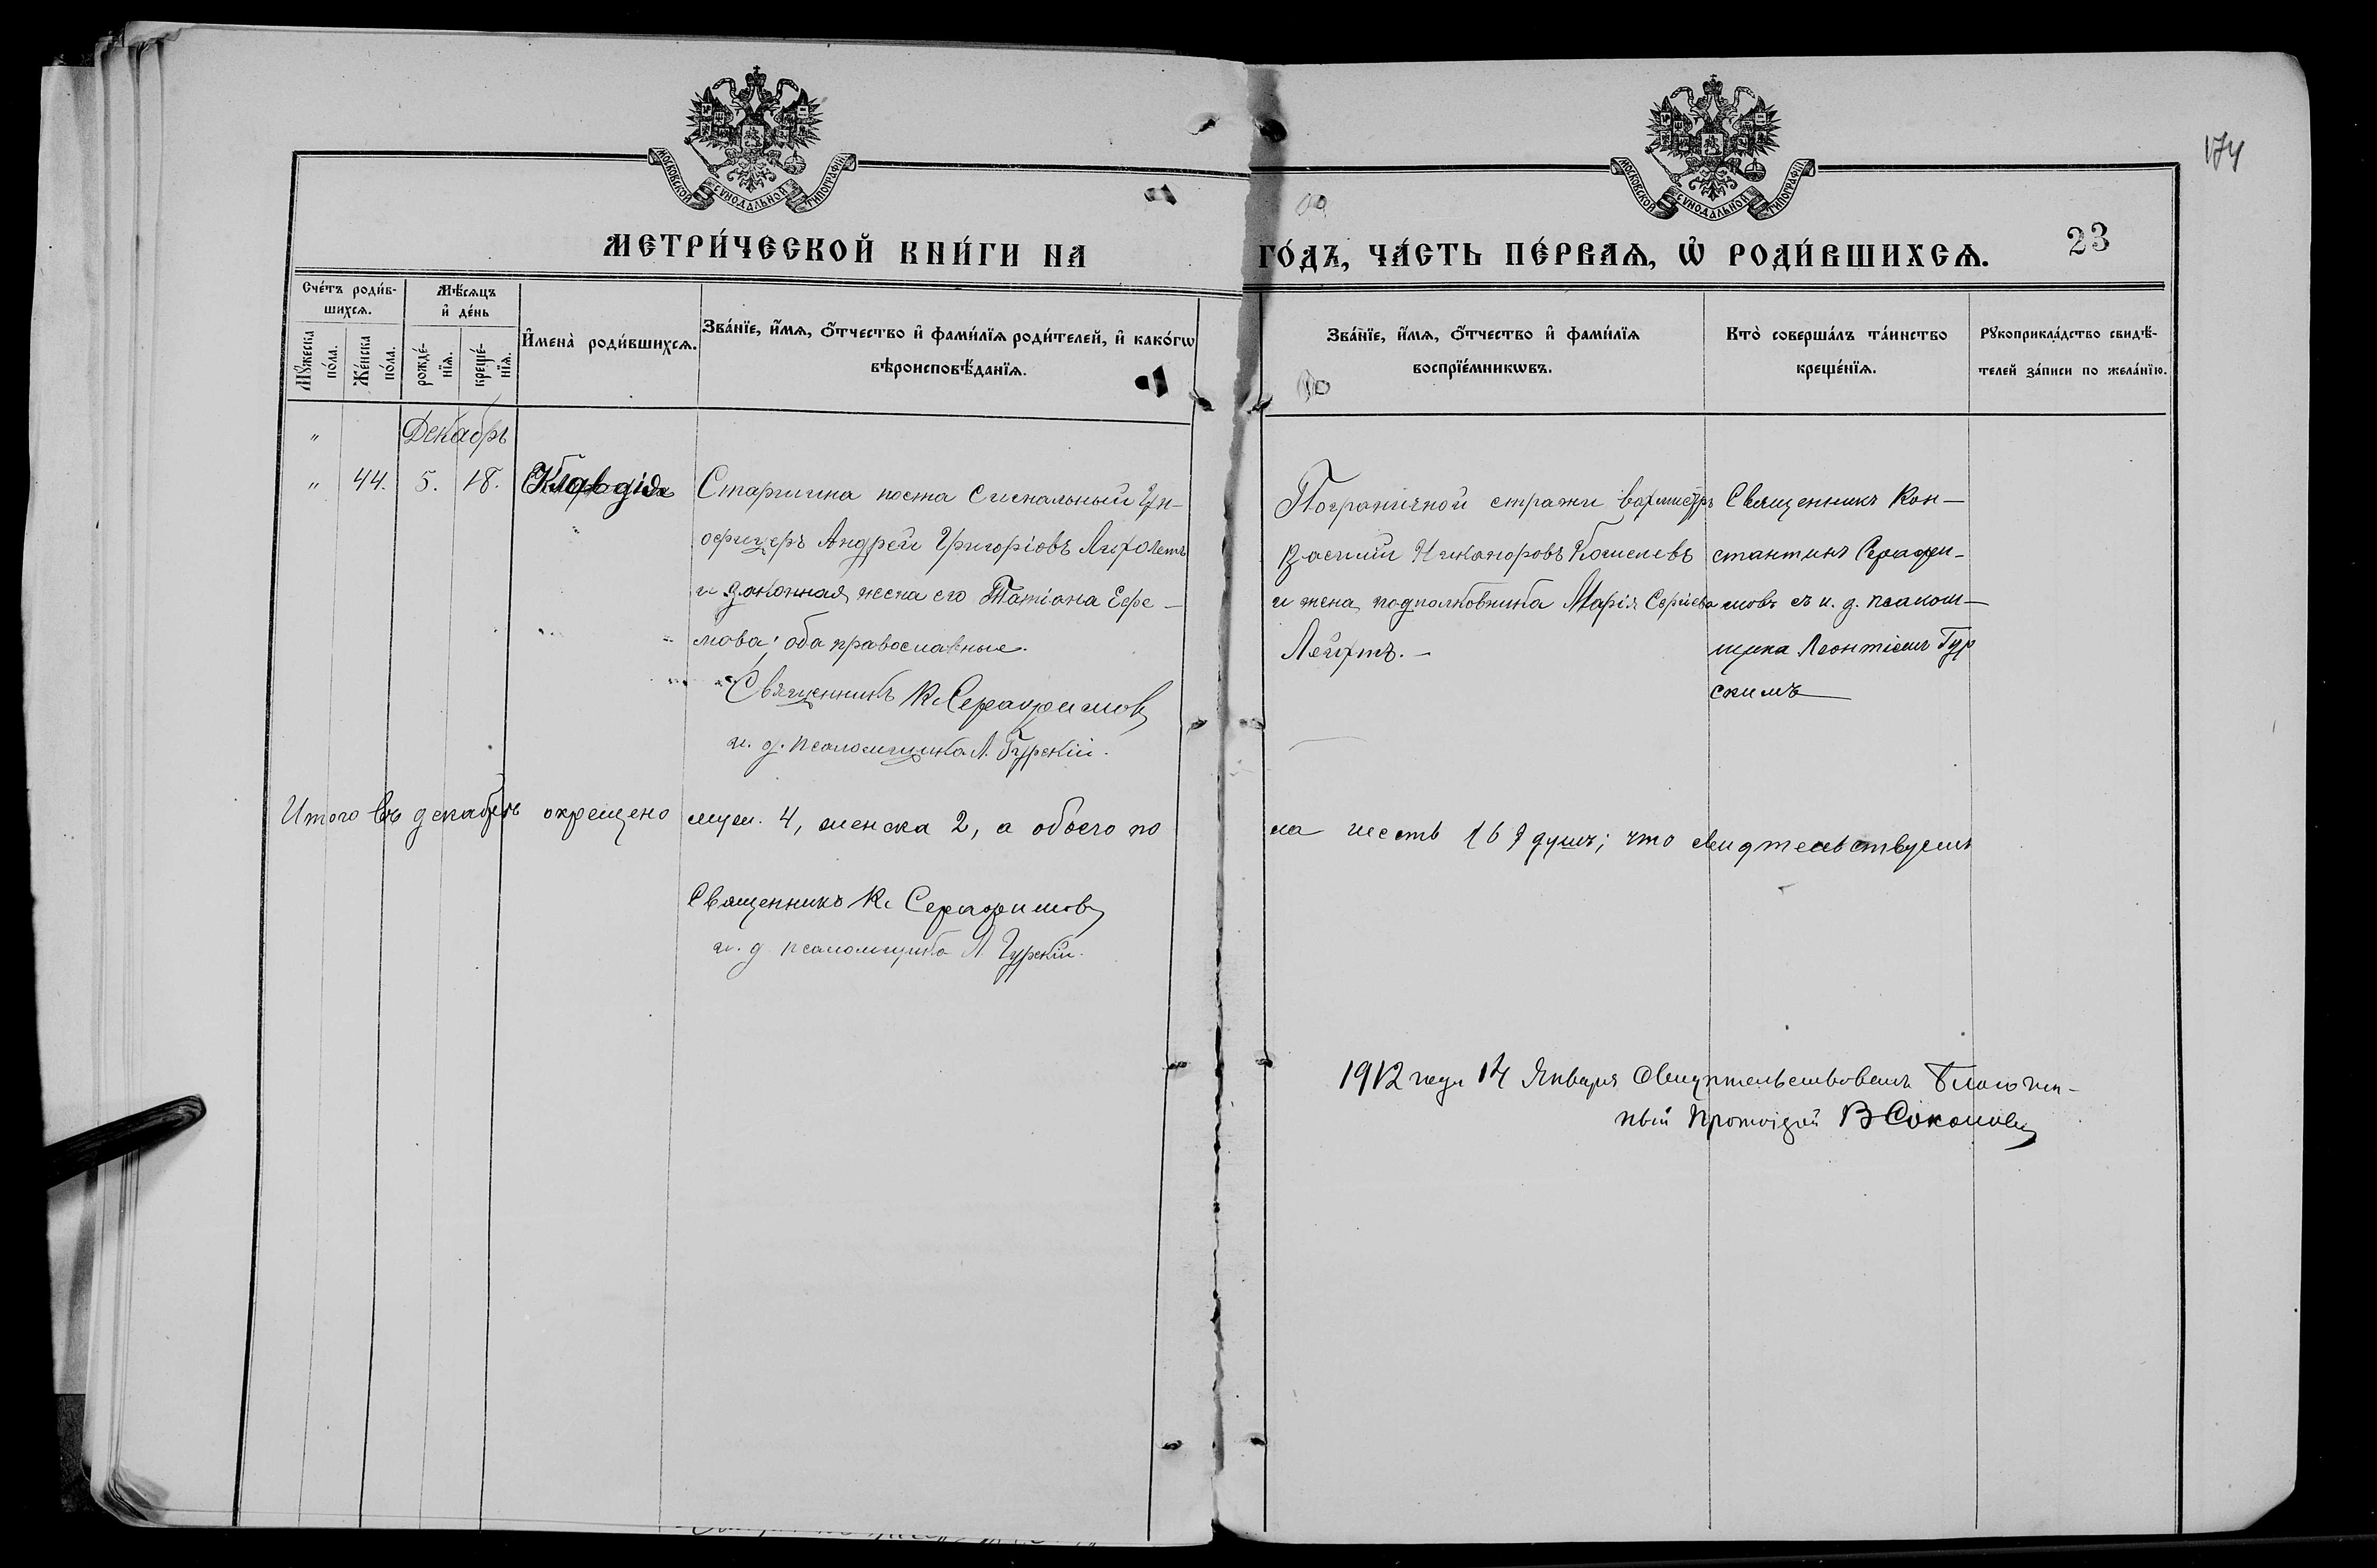 174
МОСКОВСКОЙ СѴНОДАЛЬНОЙ ТИПОГРАФІИ
МОСКОВСКОЙ СѴНОДАЛЬНОЙ ТИПОГРАФІИ
23
МЕТРИ́ЧЕСКОЙ КНИ́ГИ НА
ГО́ДЪ, ЧА́СТЬ ПЕ́РВАѦ, Ѡ҆ РОДИ́ВШИХСѦ.
Сче́тъ роди́в-
шихсѧ.
Мѣ́сѧцъ
и҆ де́нь
Мꙋ́жеска
по́ла.
Же́нска
по́ла.
рожде́-
нїѧ.
креще́-
нїѧ.
И҆мена̀ роди́вшихсѧ.
Зва́нїе, и҆́мѧ, о҆́тчество и҆ фами́лїѧ роди́телей, и҆ како́гѡ
вѣроисповѣ́данїѧ.
Зва́нїе, и҆́мѧ, о҆́тчество и҆ фами́лїѧ
воспрїе́мникѡвъ.
Кто̀ соверша́лъ та́инство
креще́нїѧ.
Рꙋкоприкла́дство свидѣ́-
телей за́писи по жела́нїю.
" Декабрь
" 44. 5. 18. Клавдія
Старшина поста Сигнальный Ун-
офицеръ Андрей Григоріовъ
и законная жена его Татіана Ефе-
мова; оба православные.
Священникъ К. Серафимовъ
и. д. псаломщика Л. Гурскій.
Пограничной стражи вахмистръ
Василій Никаноровъ Кошелевъ
и жена подполковника Марія Сергіева
Лейхтъ. —
Священникъ Кон-
стантинъ Серафи-
мовъ съ и. д. псалом-
щика Леонтіемъ Гур
скимъ
Итого въ декабрѣ окрещено муж. 4, женска 2, а обоего по
ла шесть /6/ душъ; что свидѣтельствуемъ
Священникъ К. Серафимовъ
и. д псаломщика Л Гурскій.
1912 года 14 Января Свидѣтельствовалъ Благочин-
ный Протоіерей В Соколовъ